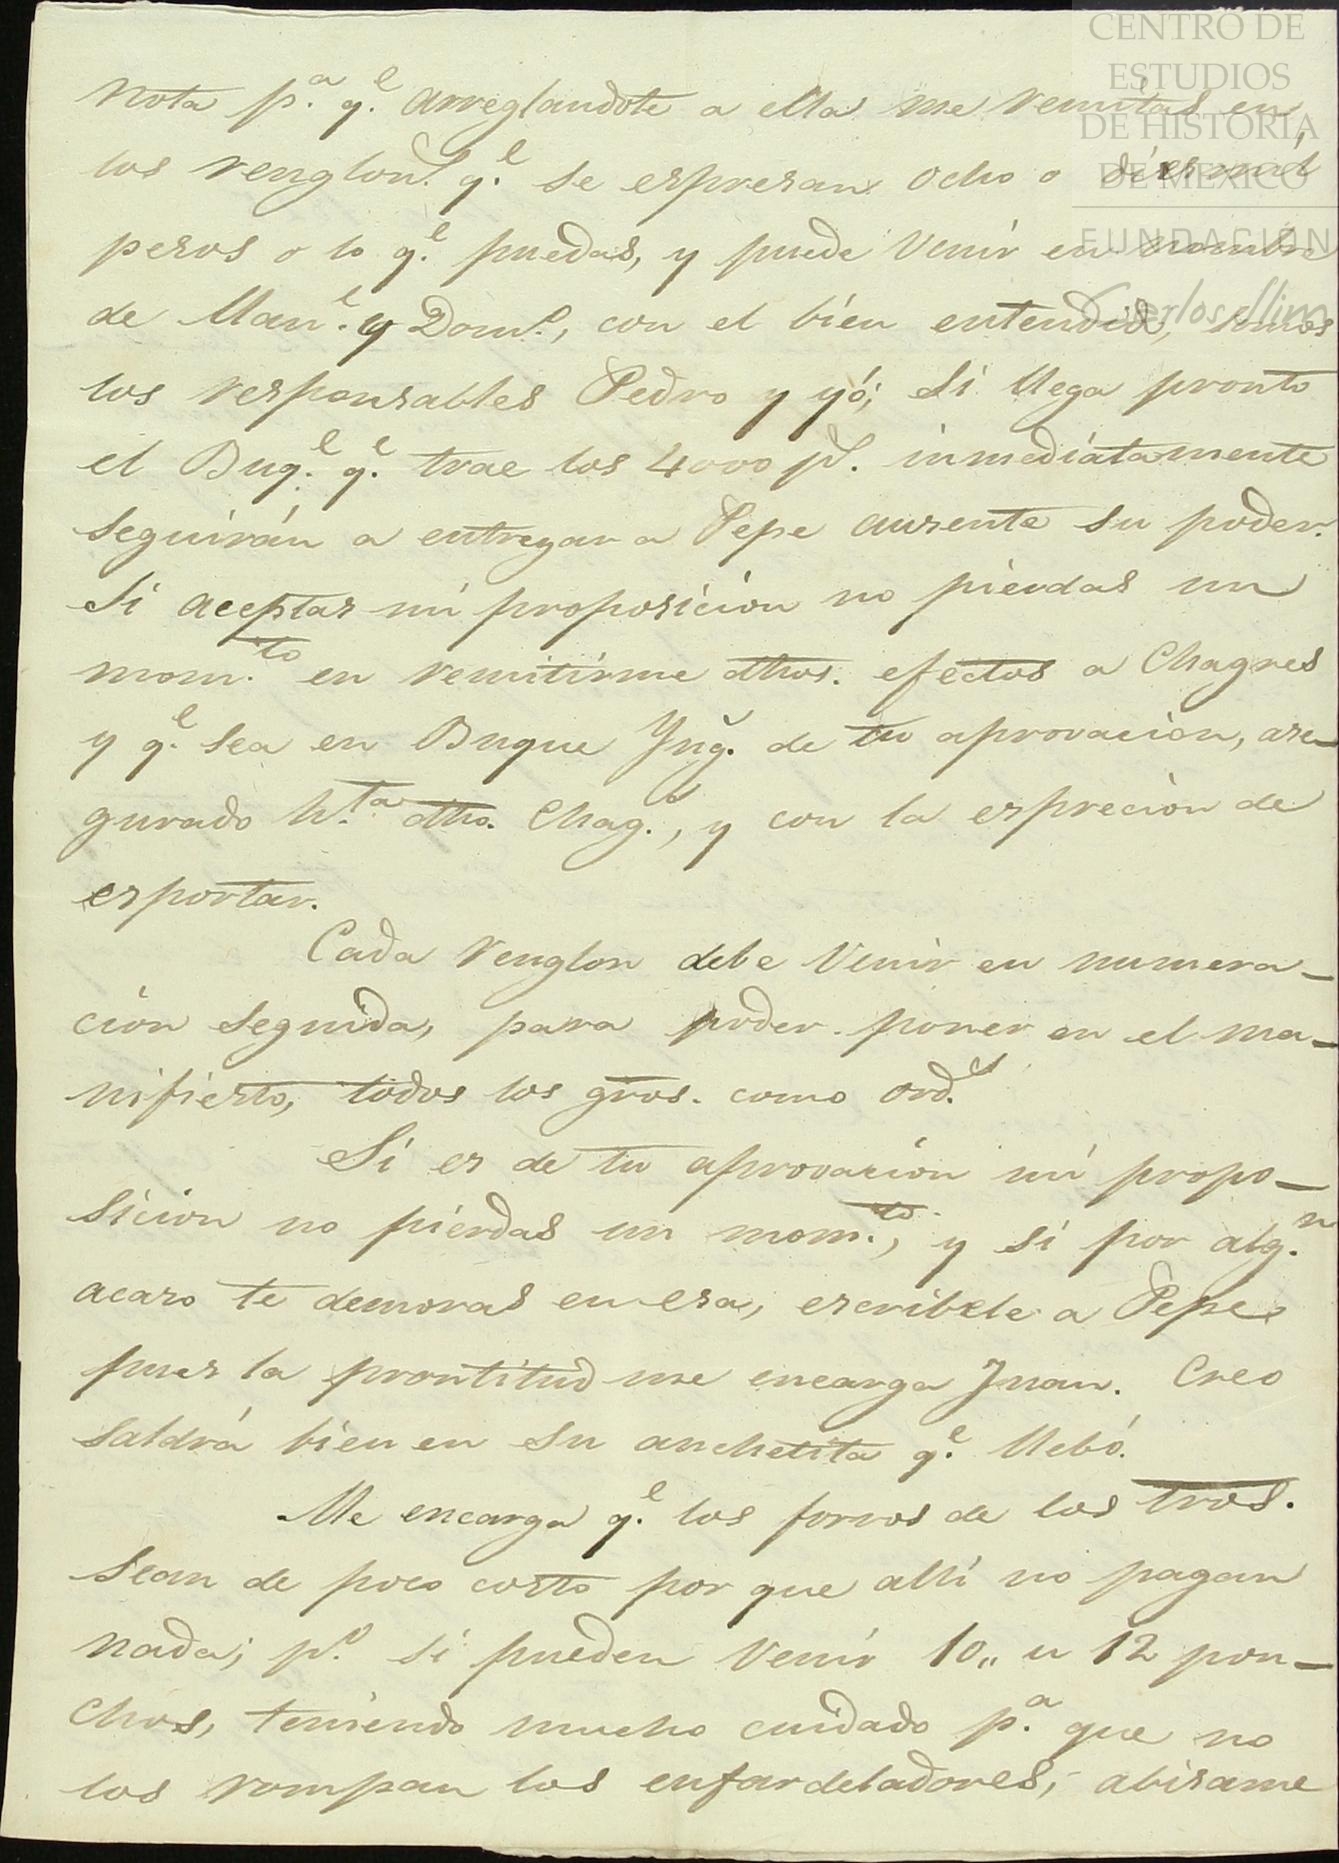 CENTRO DE
ESTUDIOS
DE HISTORIA
DE MÉXICO
FUNDACIÓN
Carlos Slim
nota p.ª q.e arreglandote a ella me remitas en
los renglon.s q.e se espresan ocho o diesmil
pesos o lo q.e puedas, y puede venir en nombre
de Man.l y Dom.o, con el bien entendido, somos
los responsables Pedro y yó; si llega pronto
el Buq.e q.e trae los 4000 p.s inmediatamente
seguirán a entregar a Pepe ausente su poder.
Si aceptas mi proposicion no pierdas un
mom.to en remitirme dhos. efectos a Chagres
y q.e sea en Buque Yng.s de tu aprovacion, ase-
gurado h.ta dho. Chag.s, y con la esprecion de
esportar.
Cada renglon debe venir en numera-
cion seguida, para poder poner en el ma-
nifiesto, todos los gros. como ord.s
Si es de tu aprovacion mi propo-
sicion no pierdas un mom.to, y si por alg.n
acaso te demoras en esa, escribele a Pepe
pues la prontitud me encarga Juan. Creo
saldrá bien en su anchetita q.e llebó.
Me encarga q.e los forros de los tros.
sean de poco costo por que alli no pagan
nada; p.o si pueden venir 10,, u 12 pon-
chos, teniendo mucho cuidado p.ª que no
los rompan los enfardeladores; abisame